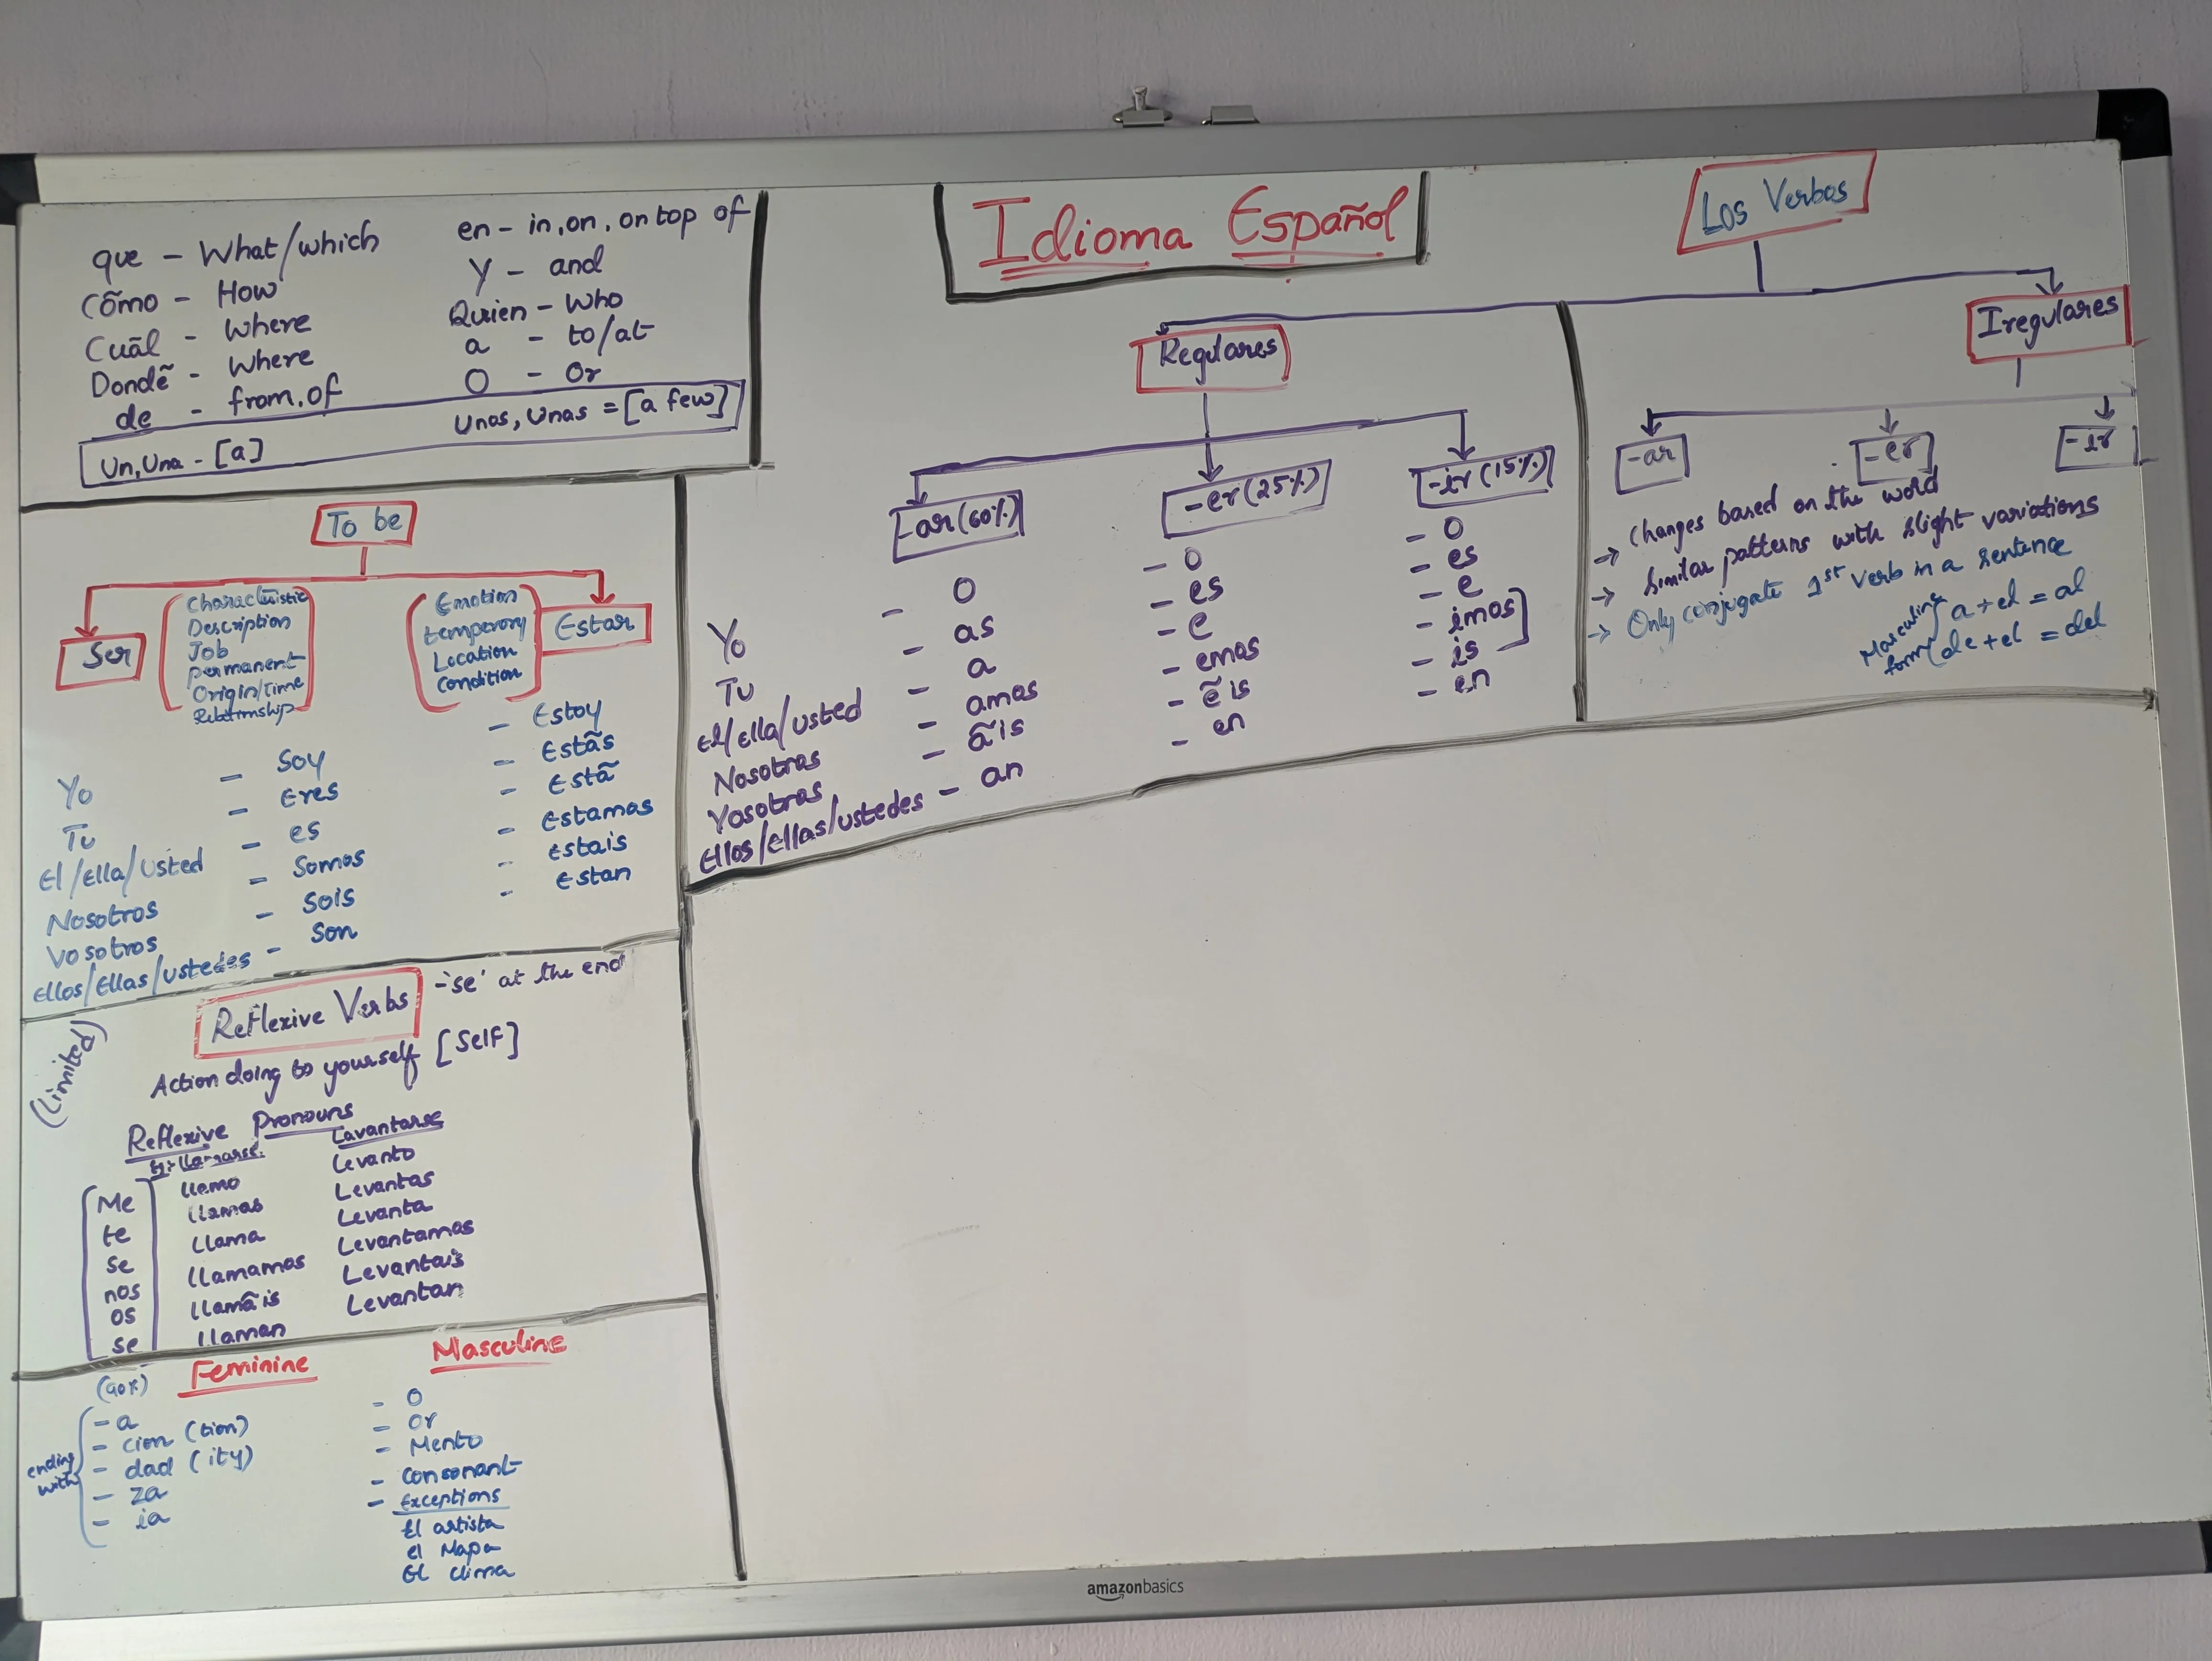 que - What/which
Cõmo - How
Cuãl - Where
Dondẽ - Where
de - from, of
en - in, on, on top of
Y - and
Quien - Who
a - to/at
O - Or
Un, Una - [a]
Unos, Unas = [a few]
Idioma Español
Los Verbos
Regulares
Iregulares
-ar (60%)
-er (25%)
-ir (15%)
Yo - O - O - O
Tu - as - es - es
El/Ella/Usted - a - e - e
Nosotros - amos - emos - imos
Vosotros - ãis - ẽis - is
Ellos/Ellas/Ustedes - an - en - en
-ar
-er
-ir
→ Changes based on the word
→ Similar patterns with slight variations
→ Only conjugate 1st Verb in a sentence
Masculine form
a + el = al
de + el = del
To be
Ser
Characteristic
Description
Job
Permanent
Origin/Time
Relationship
Emotion
temperory
Location
Condition
Estar
Yo - Soy - Estoy
Tu - Eres - Estãs
El/Ella/Usted - es - Estã
Nosotros - Somos - Estamos
Vosotros - Sois - Estais
Ellos/Ellas/Ustedes - Son - Estan
(Limited)
Reflexive Verbs -'se' at the end
Action doing to yourself [Self]
Reflexive Pronouns
Eg: llamarse. Lavantarse
Me llamo Levanto
te llamas Levantas
se llama Levanta
nos llamamos Levantamos
os llamãis Levantais
se llaman Levantan
Feminine
ending with
- a
- cion (tion)
- dad (ity)
- za
- ia
Masculine
- O
- Or
- Mento
- Consonant
- Exceptions
El artista
el Mapa
El clima
amazonbasics